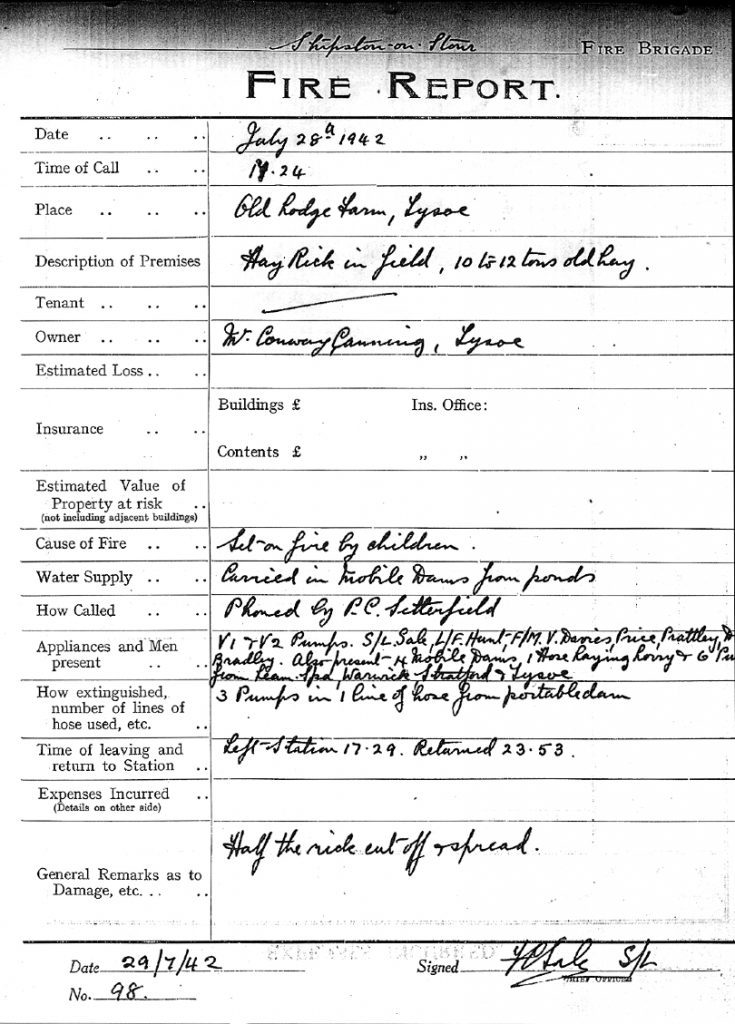 Shipston-on-Stour FIRE BRIGADE
FIRE REPORT.
Date .. .. .. July 28th 1942
Time of Call .. .. 17.24
Place .. .. .. Old Lodge Farm, Tysoe
Description of Premises Hay Rick in field, 10 to 12 tons old hay.
Tenant .. .. ..
Owner .. .. .. Mr. Conway Canning, Tysoe
Estimated Loss .. ..
Buildings £ Ins. Office:
Insurance .. ..
Contents £ „ „
Estimated Value of
Property at risk ..
(not including adjacent buildings)
Cause of Fire .. .. Set on fire by children.
Water Supply .. .. Carried in Mobile Dams from ponds
How Called .. .. Phoned by P.C. Sitterfield
Appliances and Men
present .. ..
V1 & V2 Pumps. S/L. Sale, L/F. Hunt, F/M. V. Davies, Price, Prattley,
Bradley. Also present 4 Mobile Dams, 1 Hose Laying Lorry & 6 Pu
from Leam. Spa, Warwick, Stratford & Tysoe
How extinguished,
number of lines of
hose used, etc. ..
3 Pumps in 1 line of hose from portable dam
Time of leaving and
return to Station ..
Left Station 17.29. Returned 23.53.
Expenses Incurred ..
(Details on other side)
General Remarks as to
Damage, etc. .. ..
Half the rick cut off & spread.
Date 29/7/42 Signed Sale S/L
CHIEF OFFICER
No. 98.